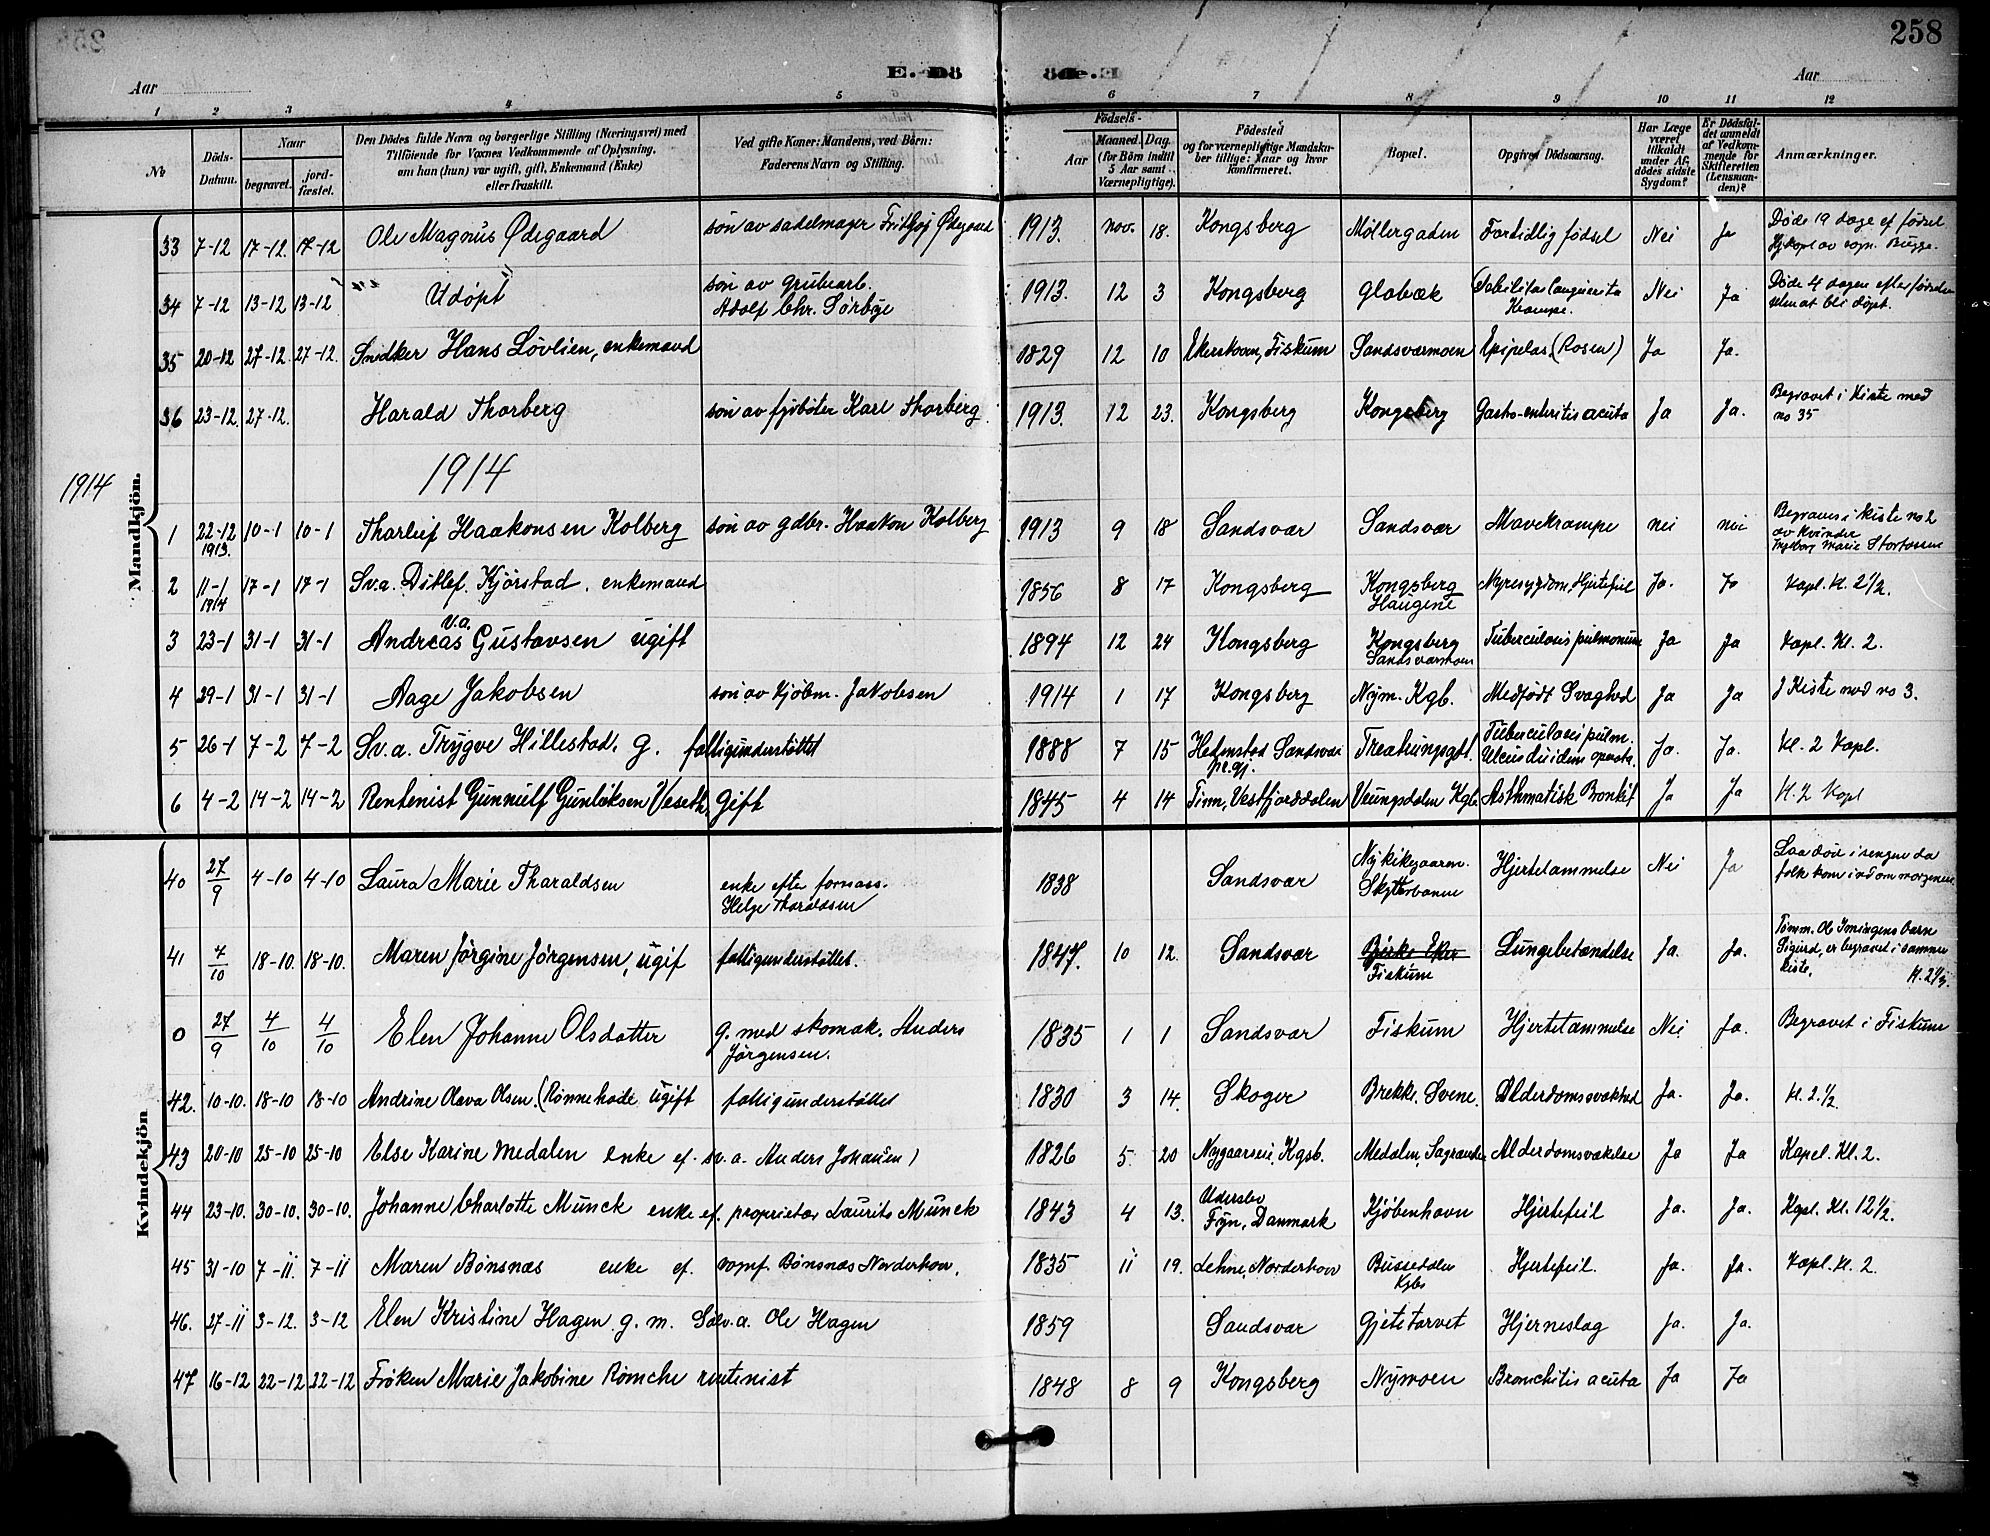 258
E. Dö
öde.
Aar
Aar
1 2 3 4 5 6 7 8 9 10 11 12
No
Döds-Datum.
Naar
begravet.
jordfæstet.
Den Dödes fulde Navn og borgerlige Stilling (Næringsvei) med
Tilföiende for Voxnes Vedkommende af Oplysning,
om han (hun) var ugift, gift, Enkemand (Enke)
eller fraskilt.
Ved gifte Koner: Mandens, ved Börn:
Faderens Navn og Stilling.
Födsels-
Aar
Maaned. Dag.
(for Börn indtil
5 Aar samt
Værnepligtige).
Födested
og for værnepligtige Mandskaber tillige: Naar og hvor
konfirmeret.
Bopæl.
Opgiven Dödsaarsag.
Har Læge
været
tilkaldt
under Afdödes sidste
Sygdom?
Er Dödsfaldet anmeldt
af Vedkommende for
Skifteretten
(Lensmanden)?
Anmærkninger.
1914
Mandkjön.
33 7-12 17-12. 17-12 Ole Magnus Ødegaard søn av sadelmager Frithjof Ødegaard 1913. nov. 18. Kongsberg Møllergaden Fortidlig fødsel Nei Ja Døde 19 dage ef fødsel
Hjdøpt av sogn. Bugge.
34 7-12 13-12 13-12 Udøpt søn av grubearb.
Adolf Chr. Sørbye 1913. 12 3 Kongsberg Glabæk Krampe. Nei Ja Døde 4 dager efter fødselen
uten at bli døpt.
35 20-12 27-12. 27-12. Snedker Hans Løvlien, enkemand 1829 12 10 Fiskum Sandsværmoen (Rosen) Ja Ja.
36 23-12. 27-12. Harald Thorberg søn av fyrbøter Karl Thorberg 1913. 12 23. Kongsberg Kongsberg Gastro-enteritis acuta Ja Ja. Begravet i kiste med
no 35
1914
1 22-12
1913. 10-1 10-1 Tharleif Haakonsen Kolberg søn av gdbr. Haakon Kolberg 1913 9 18 Sandsvær Sandsvær Mavekrampe nei nei Begraves i kiste no 2
av kvinder
Ingeborg Marie
2 11-1
1914 17-1 17-1 Sv.a. Ditlef Kjørstad, enkemand 1856 8 17 Kongsberg Kongsberg
Haugene Nyresygdom, Hjertefeil Ja. Ja Kapl. Kl. 2 1/2.
3 23-1 31-1 31-1 v.a.
Andreas Gustavsen ugift 1894 12 24 Kongsberg Kongsberg
Sandsværmoen Tuberculosis pulmonum Ja Ja Kapl. Kl. 2.
4 29-1 31-1 31-1 Aage Jakobsen søn av kjøbm. Jakobsen 1914 1 17 Kongsberg Nym. Kgb. Medfødt Svaghed Ja Ja I kiste med no 3.
5 26-1 7-2 7-2 Sv.a. Trygve Hillestad. g. fattigunderstøttet 1888 7 15 Hedenstad Sandsvær
pr.gj. Tuberculosis pulm.
Ulcus Ja. Ja. Kl. 2 Kapl.
6 4-2 14-2 14-2 Rentenist Gunnulf Gunleksen Veseth, gift 1845 4 14 Tinn, Vestfjorddalen Veungsdalen Kgb. Asthmatisk Bronkit Ja Ja Kl. 2 Kapl
Kvindekjön
40 27/9 4-10 4-10 Laura Marie Tharaldsen enke efter
Helge Tharaldsen 1838 Sandsvær
Skytterbanen Hjertelammelse Nei Ja Laa død i sengen da
folk kom ind om morgenen.
41 7/10 18-10. 18-10. Maren Jørgine Jørgensen, ugif fattigunderstøttet. 1847. 10 12. Sandsvær Bjerke Eker
Fiskum Lungebetændelse Ja. Ja. Tømm. Ol. barn
Sigurd, er begravet i samme
kiste. Kl. 2 1/2.
0 27/9 4/10 4/10 Elen Johanne Olsdatter g. med skomak. Anders
Jørgensen. 1835 1 1 Sandsvær Fiskum Hjertelammelse Nei Ja. Begravet i Fiskum
42. 10-10. 18-10 18-10 Andrine Olava Olsen (Rønnehode ugift fattigunderstøttet 1830 3 14. Skoger Brekke. Svene. Alderdomssvakhed Ja. Ja. Kl. 2 1/2.
43 20-10 25-10 25-10 Else Karine Medalen enke ef. sv.a. Anders Johansen) 1826 5. 20 Kgsb. Medalen, Alderdomsvakelse Ja Ja Kapel. Kl. 2.
44 23-10. 30-10. 30-10. Johanne Charlotte Munck enke ef. proprietær Laurits Munck 1843 4 13. Uderslev
Fyn, Danmark Kjøbenhavn Hjertefeil Ja. Ja. Kapl. Kl. 12 1/2.
45 31-10 7-11. 7-11 Maren Bønsnæs enke ef. sognf. Bønsnæs Norderhov. 1835 11 19. Lehne, Norderhov Bussedalen
Kgbs Hjertefeil. Ja. Ja. Kapl. Kl. 2.
46. 27-11 3-12. 3-12 Elen Kristine Hagen g. m. Sølv.a. Ole Hagen 1859 Sandsvær Gjetetorvet Hjerneslag Ja. Ja.
47 16-12 22-12 22-12 Frøken Marie Jakobine Rømcke rentenist 1848 8 9 Kongsberg Nymoen Bronchitis acuta Ja Ja